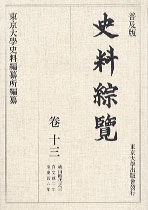 普及版
東京大學史料編纂所編纂
史料綜覽
卷 十三
東京大學出版會發行